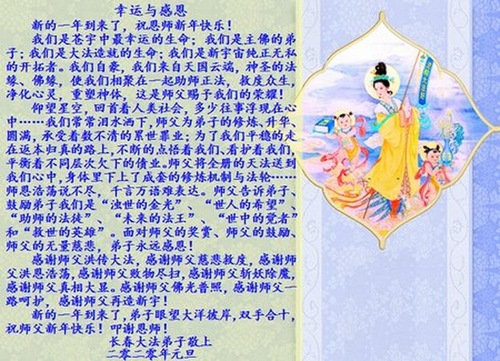 幸运与感恩
新的一年到来了，祝恩师新年快乐！
我们是苍宇中最幸运的生命；我们是主佛的弟
子；我们是大法造就的生命；我们是新宇宙纯正无私
的开拓者。我们自豪，我们来自天国云端，神圣的法
缘、佛缘，使我们相聚在一起助师正法，救度众生，
净化心灵，重塑神体，这是师父赐予我们的荣耀！
仰望星空，回首看人类社会，多少往事浮现在心
中……我们常常泪水洒下，师父为弟子的修炼、升华、
圆满，承受着数不清的累世罪业；为了我们平稳的走
在返本归真的路上，不断的点悟着我们、看护着我们，
平衡着不同层次欠下的债业。师父将全册的天法送到
我们心中，身体里下上了成套的修炼机制与法轮……
师恩浩荡说不尽，千言万语难表达。师父告诉弟子、
鼓励弟子我们是“浊世的金光”、“世人的希望”、
“助师的法徒”、“未来的法王”、“世中的觉者”
和“救世的英雄”。面对师父的奖赏、师父的鼓励、
师父的无量慈悲，弟子永远感恩！
感谢师父洪传大法，感谢师父慈悲救度，感谢师
父洪恩浩荡，感谢师父败物尽扫，感谢师父斩妖除魔，
感谢师父真相大显。感谢师父佛光普照，感谢师父一
路呵护，感谢师父再造新宇！
新的一年到来了，弟子眼望大洋彼岸，双手合十，
祝师父新年快乐！叩谢恩师！
长春大法弟子敬上
二零二零年元旦